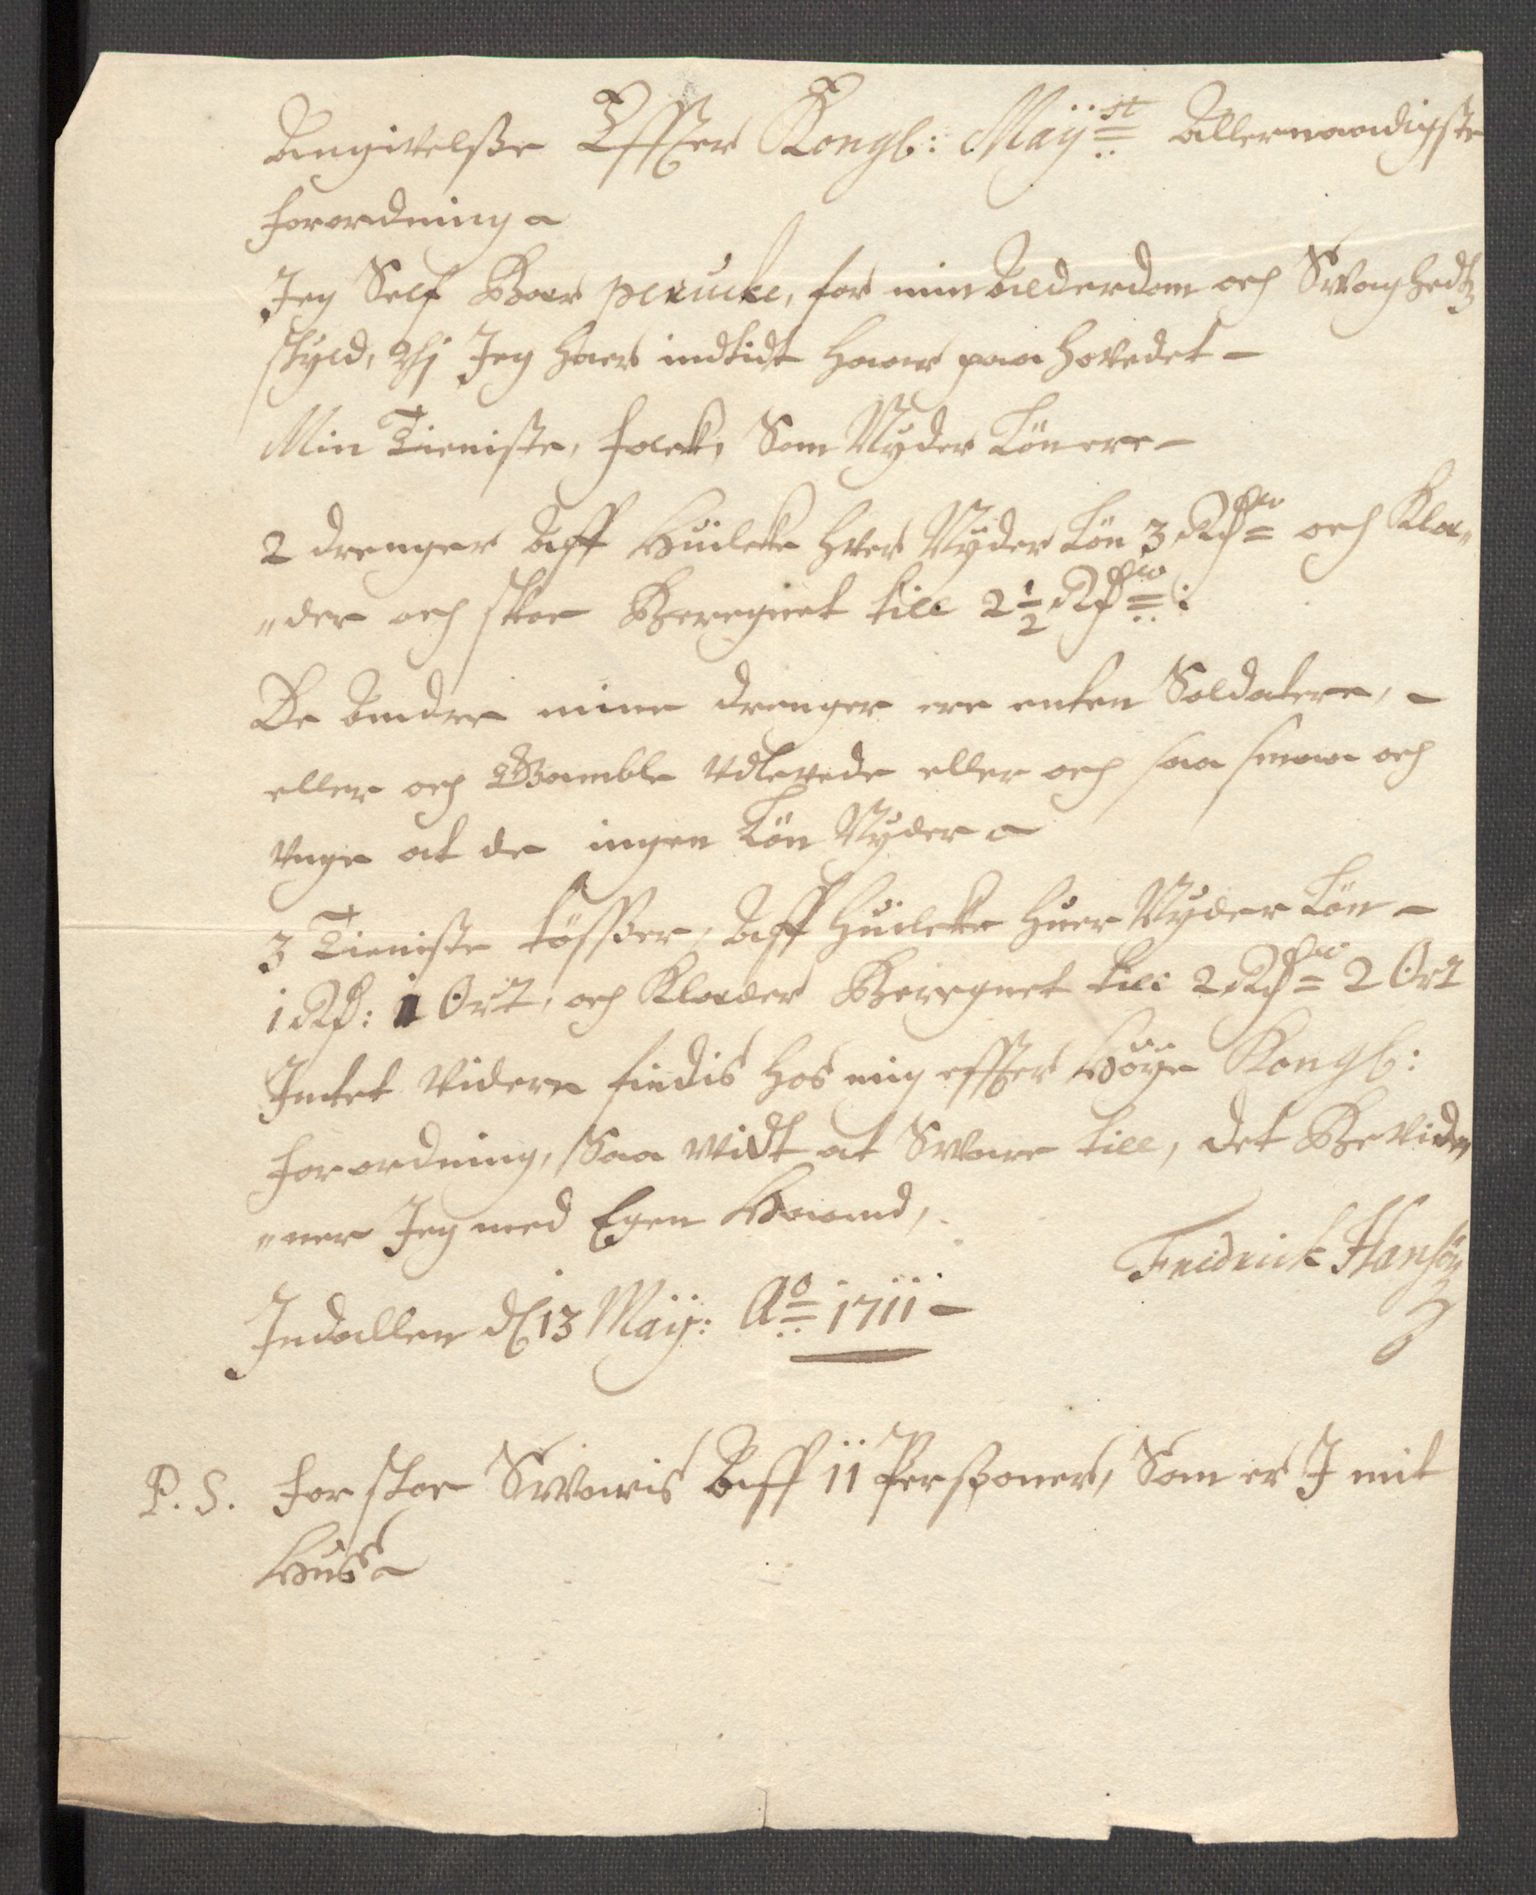 Angivelsse Effter Kongl: Maÿst Allernaadigste
forordning
Jeg Self Baer perucke, for min Alderdom och Svaghedtz
skyld, thj Jeg haer indtidt haar paa hovedet —
Min Tieniste, folck, Som Nyder Lön ere —
2 drenger Aff Huilcke hver Nyder Lön 3 Rdr och Klæ„
„der och skoe Beregnet till 2 1/2 Rdr:
De Andre mine drenger ere enten Soldatere, —
eller och Gamble udlevede eller och saa smaa och
unge at de ingen Lön Nyder
3 Tieniste tösser, Aff Huilcke huer Nyder Lön —
1 Rd: 1 Ort, och Klæder Beregnet till 2 Rdr 2 Ort
Intet videre findis hos mig effter Höye Kongl:
forordning, Saa vidt at Svare till, det Bevid„
„ner Jeg med Egen Haand,
Fridrick Hansön
Indallen d 13 Maÿ: Ao 1711 —
P. S. for skoe Svaris Aff 11 Persohner, Som er J mit
Huus